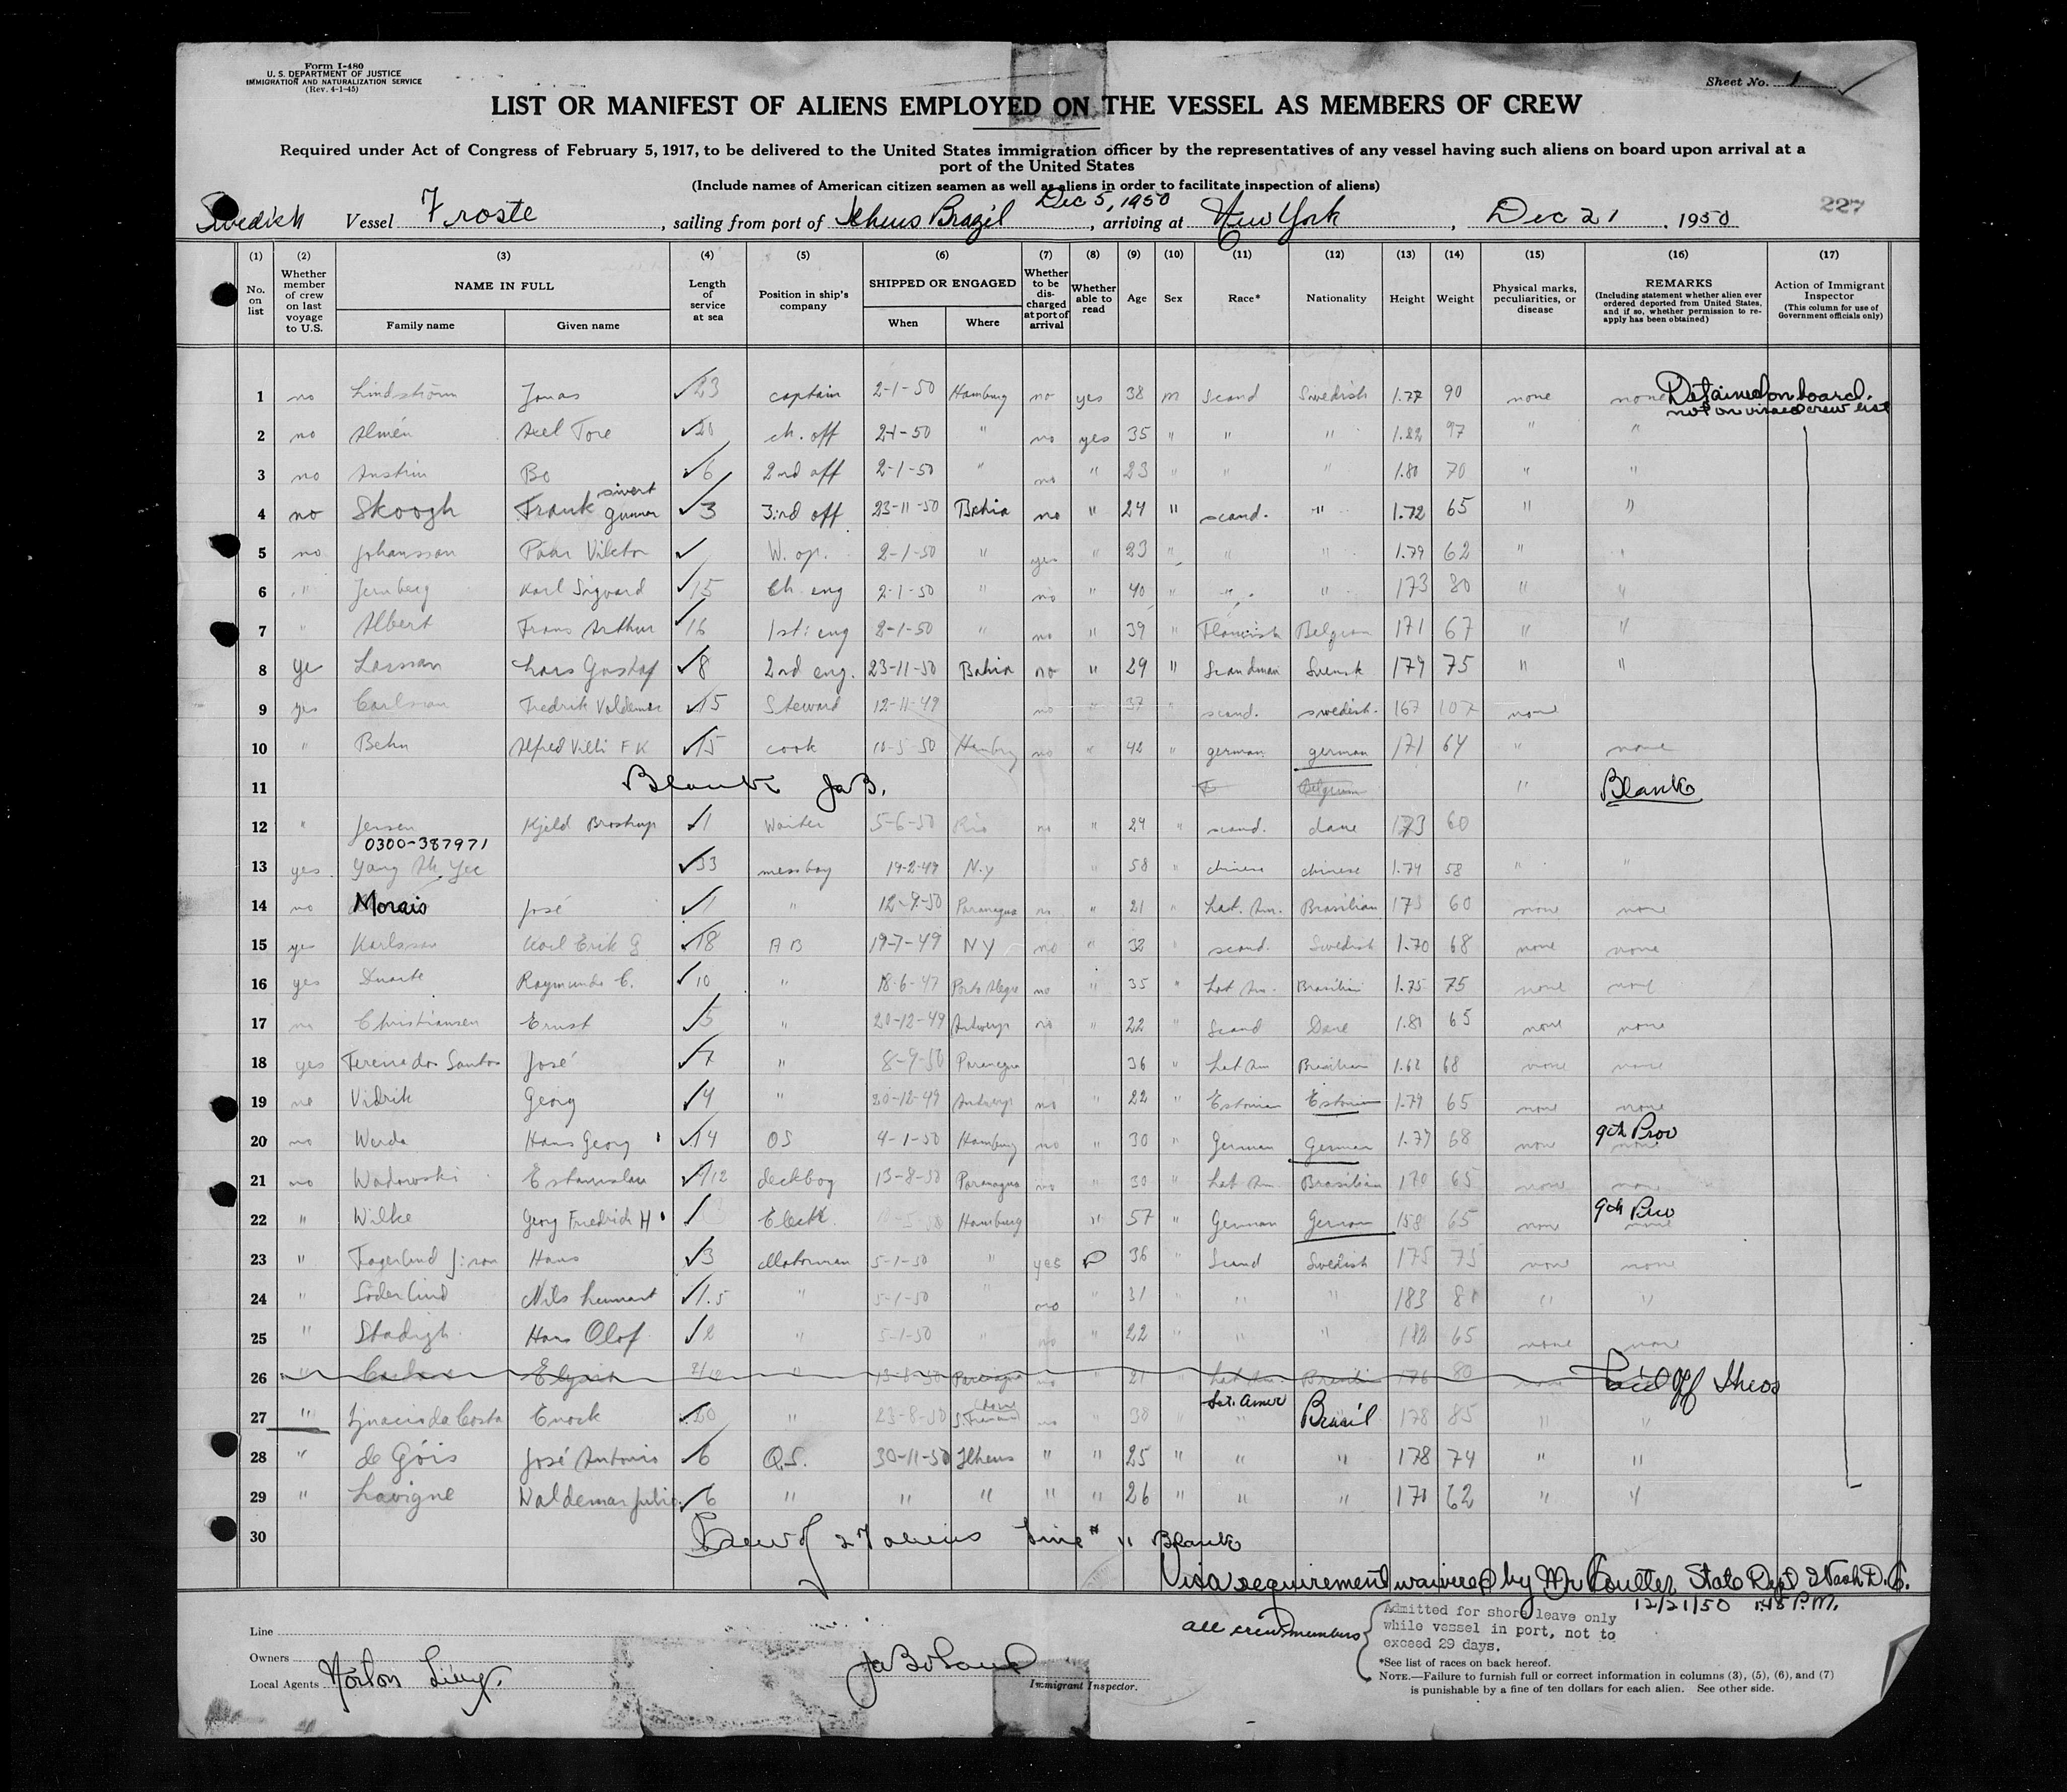 Form I-480
U. S. DEPARTMENT OF JUSTICE
IMMIGRATION AND NATURALIZATION SERVICE
(Rev. 4-1-45)
Sheet No. 1
LIST OR MANIFEST OF ALIENS EMPLOYED ON THE VESSEL AS MEMBERS OF CREW
Required under Act of Congress of February 5, 1917, to be delivered to the United States immigration officer by the representatives of any vessel having such aliens on board upon arrival at a
port of the United States
(Include names of American citizen seamen as well as aliens in order to facilitate inspection of aliens)
Dec 5, 1950
Swedish Vessel Froste, sailing from port of Ilheus Brazil, arriving at New York, Dec 21, 1950
227
(1) No. on list (2) Whether member of crew on last voyage to U.S. (3) NAME IN FULL Family name Given name (4) Length of service at sea (5) Position in ship's company (6) SHIPPED OR ENGAGED When Where (7) Whether to be discharged at port of arrival (8) Whether able to read (9) Age (10) Sex (11) Race* (12) Nationality (13) Height (14) Weight (15) Physical marks, peculiarities, or disease (16) REMARKS (Including statement whether alien ever ordered deported from United States, and if so, whether permission to re-apply has been obtained) (17) Action of Immigrant Inspector (This column for use of Government officials only)
1 no Lindström Jonas 23 captain 2-1-50 Hamburg no yes 38 m Scand Swedish 1.77 90 none none Detained on board.
not on visaed crew list
2 no Almén Axel Tore 20 ch. off 2-1-50 " no yes 35 " " " 1.82 97 " "
3 no Bo 6 2nd off 2-1-50 " no " 23 " " " 1.80 70 " "
4 no Skoogh Frank sivert Gunnar 3 3ind off 23-11-50 Bahia no " 24 " scand. " 1.72 65 " "
5 no Johansson Viktor W. op. 2-1-50 " yes " 23 " " " 1.79 62 " "
6 " Karl Sigvard 15 Ch eng 2-1-50 " no " 40 " " " 173 80 " "
7 " Albert Frans Arthur 16 1st eng 2-1-50 " no " 39 " Belgian 171 67 " "
8 ye Larsson Lars Gustaf 8 2nd eng. 23-11-50 Bahia no " 29 " Svensk 179 75 " "
9 yes Carlsson Fredrik Valdemar 15 Steward 12-11-49 no " 37 " scand. swedish. 167 107 none
10 " Behn Alfred Villi F K 15 cook 10-5-50 Hamburg no " 42 " german german 171 64 " none
11 Blank JaB. Belgium " Blank
12 " Jensen Kjeld 1 Waiter 5-6-50 Rio no " 24 " scand. dane 173 60
0300-387971
13 yes Yang Ah Yee 33 messboy 19-2-49 N.y " 58 " chinese chinese 1.74 58 " "
14 no Morais José 1 " 12-9-50 Paranagua no " 21 " Lat. Am. Brasilian 173 60 none none
15 yes Karlsson Karl Erik G 18 A B 19-7-49 NY no " 32 " scand. Swedish 1.70 68 none none
16 yes Duarte Raymundo C. 10 " 18-6-47 Porto Alegre no " 35 " Lat Am. Brasilian 1.75 75 none none
17 no Christiansen Ernst 5 " 20-12-49 Antwerp no " 22 " Scand Dane 1.81 65 none none
18 yes dos Santos José 7 " 8-9-50 Paranagua 36 " Lat Am Brasilian 1.62 68 none none
19 no Vidrik Georg 4 " 20-12-49 Antwerp no " 22 " Estonian Estonian 1.79 65 none none
20 no Hans Georg 14 OS 4-1-50 Hamburg no " 30 " German German 1.77 68 none 9th Prov none
21 no Wadowski Estanislau /12 deckboy 13-8-50 Paranagua no " 30 " Lat Am. Brasilian 170 65 none none
22 " Wilke Georg Friedrich H Elect. Hamburg " 57 " German German 158 65 none 9th Prov none
23 " Fagerlund Hans 3 Motorman 5-1-50 " yes 36 " Scand Swedish 175 75 none none
24 " Söderlind Nils Lennart 1.5 " 5-1-50 " no " 31 " " " 183 81 " "
25 " Stadigh Hans Olof 2 " 5-1-50 " no " 22 " " " 182 65 none none
26 " " 13-8-50 Paranagua no " 21 " Lat Am Brasilian 176 80 none Paid off Ilheos
27 " Ignacio da Costa Enock 20 " 23-8-50 no " 38 " Lat. Amer Brasil 178 85 " "
28 " de Góis José Antonio 6 O.S. 30-11-50 Ilheus " " 25 " " " 178 74 " "
29 " Lavigne Waldemar Julio 6 " " " " " 26 " " " 170 62 " "
30 Crew of 27 aliens Line # 11 Blank
Visa requirement waivered by Mr Coulter State Dept Wash D.C.
12/21/50 1:15 P.M.
all crew members
Admitted for shore leave only
while vessel in port, not to
exceed 29 days.
Line
Owners
Local Agents Norton Lilly
JaBoland
Immigrant Inspector.
*See list of races on back hereof.
NOTE.—Failure to furnish full or correct information in columns (3), (5), (6), and (7)
is punishable by a fine of ten dollars for each alien. See other side.